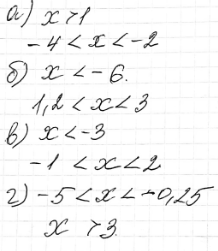 а) x > 1
-4 < x < -2
б) x < -6.
1,2 < x < 3
в) x < -3
-1 < x < 2
г) -5 < x < -0,25
x > 3.